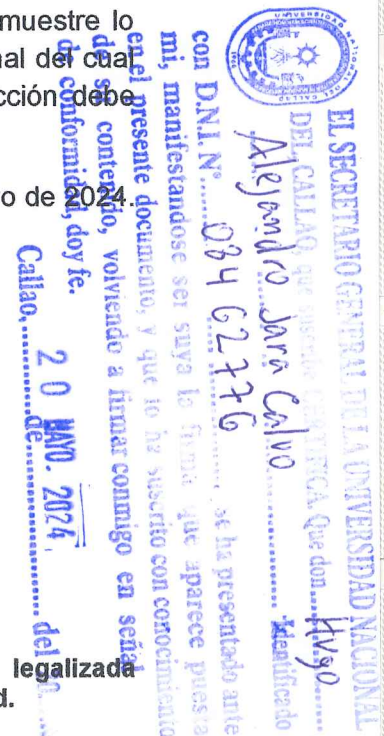 muestre lo
nal del cual
cción debe
o de 2024.
legalizada
d.
UNIVERSIDAD NACIONAL DEL CALLAO
EL SECRETARIO GENERAL DE LA UNIVERSIDAD NACIONAL
DEL CALLAO, que suscribe CERTIFICA Que don Hugo
Alejandro Jara Calvo Identificado
con D.N.I. N° 08462776, se ha presentado ante
mi, manifestandose ser suya la firma que aparece puesta
en el presente documento, y que lo ha suscrito con conocimiento
de su contenido, volviendo a firmar conmigo en señal
de conformidad, doy fe.
Callao, 20 MAYO. 2024 de del